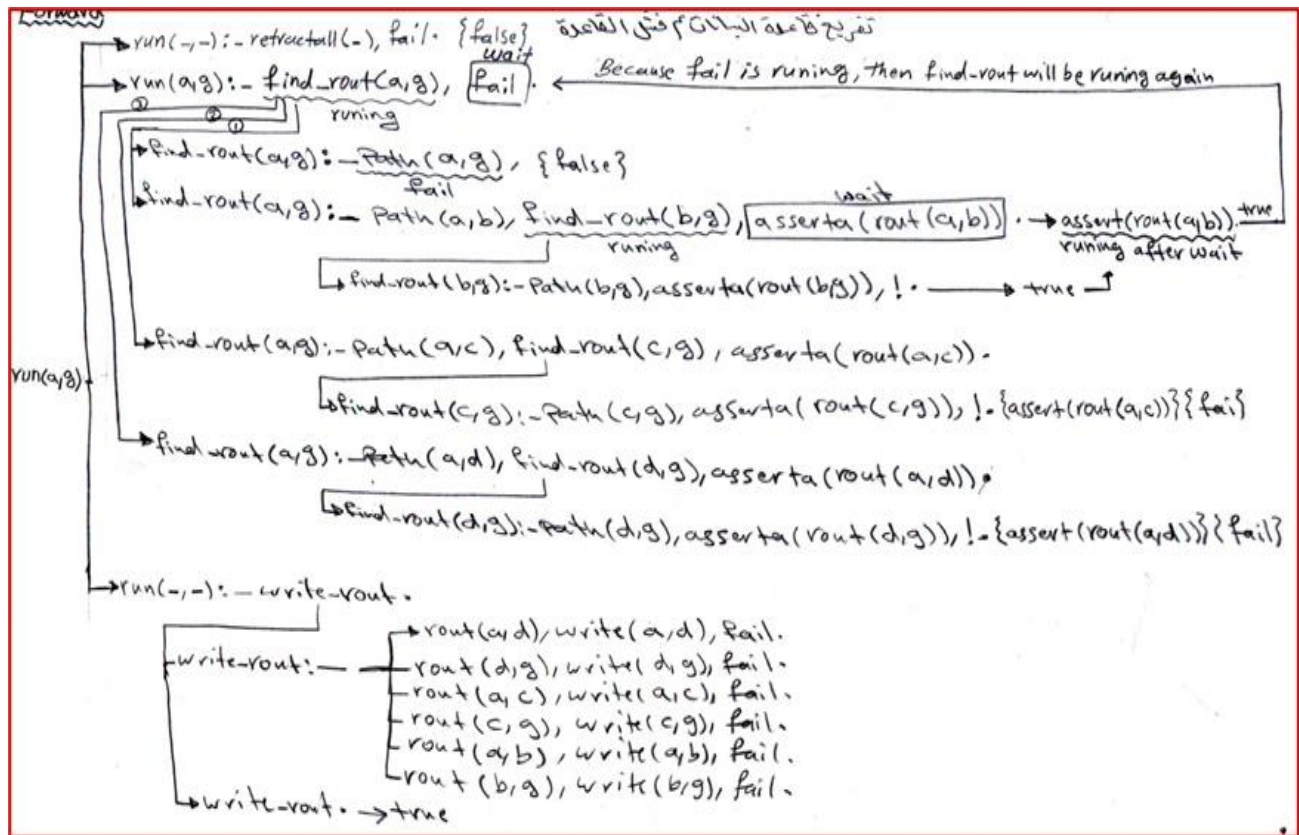 Forward
run(-,-):- retractall(-), fail. {false} تفريغ قاعدة البيانات م فتل القاعدة
wait
run(a,g):- find_rout(a,g), fail. Because fail is runing, then find-rout will be runing again
③ ② ① runing
find-rout(a,g):- Path(a,g), {false}
fail
wait
find-rout(a,g):- Path(a,b), find_rout(b,g), asserta(rout(a,b)). → assert(rout(a,b)). true
runing runing after wait
find-rout(b,g):- Path(b,g), asserta(rout(b,g)), !. → true
find-rout(a,g):- Path(a,c), find_rout(c,g), asserta(rout(a,c)).
run(a,g)
find-rout(c,g):- Path(c,g), asserta(rout(c,g)), !. {assert(rout(a,c))}{fai}
find-rout(a,g):- Path(a,d), find-rout(d,g), asserta(rout(a,d)).
find-rout(d,g):- Path(d,g), asserta(rout(d,g)), !. {assert(rout(a,d))}{fail}
run(-,-):- write-rout.
rout(a,d), write(a,d), fail.
write-rout:- rout(d,g), write(d,g), fail.
rout(a,c), write(a,c), fail.
rout(c,g), write(c,g), fail.
rout(a,b), write(a,b), fail.
rout(b,g), write(b,g), fail.
write-rout. → true